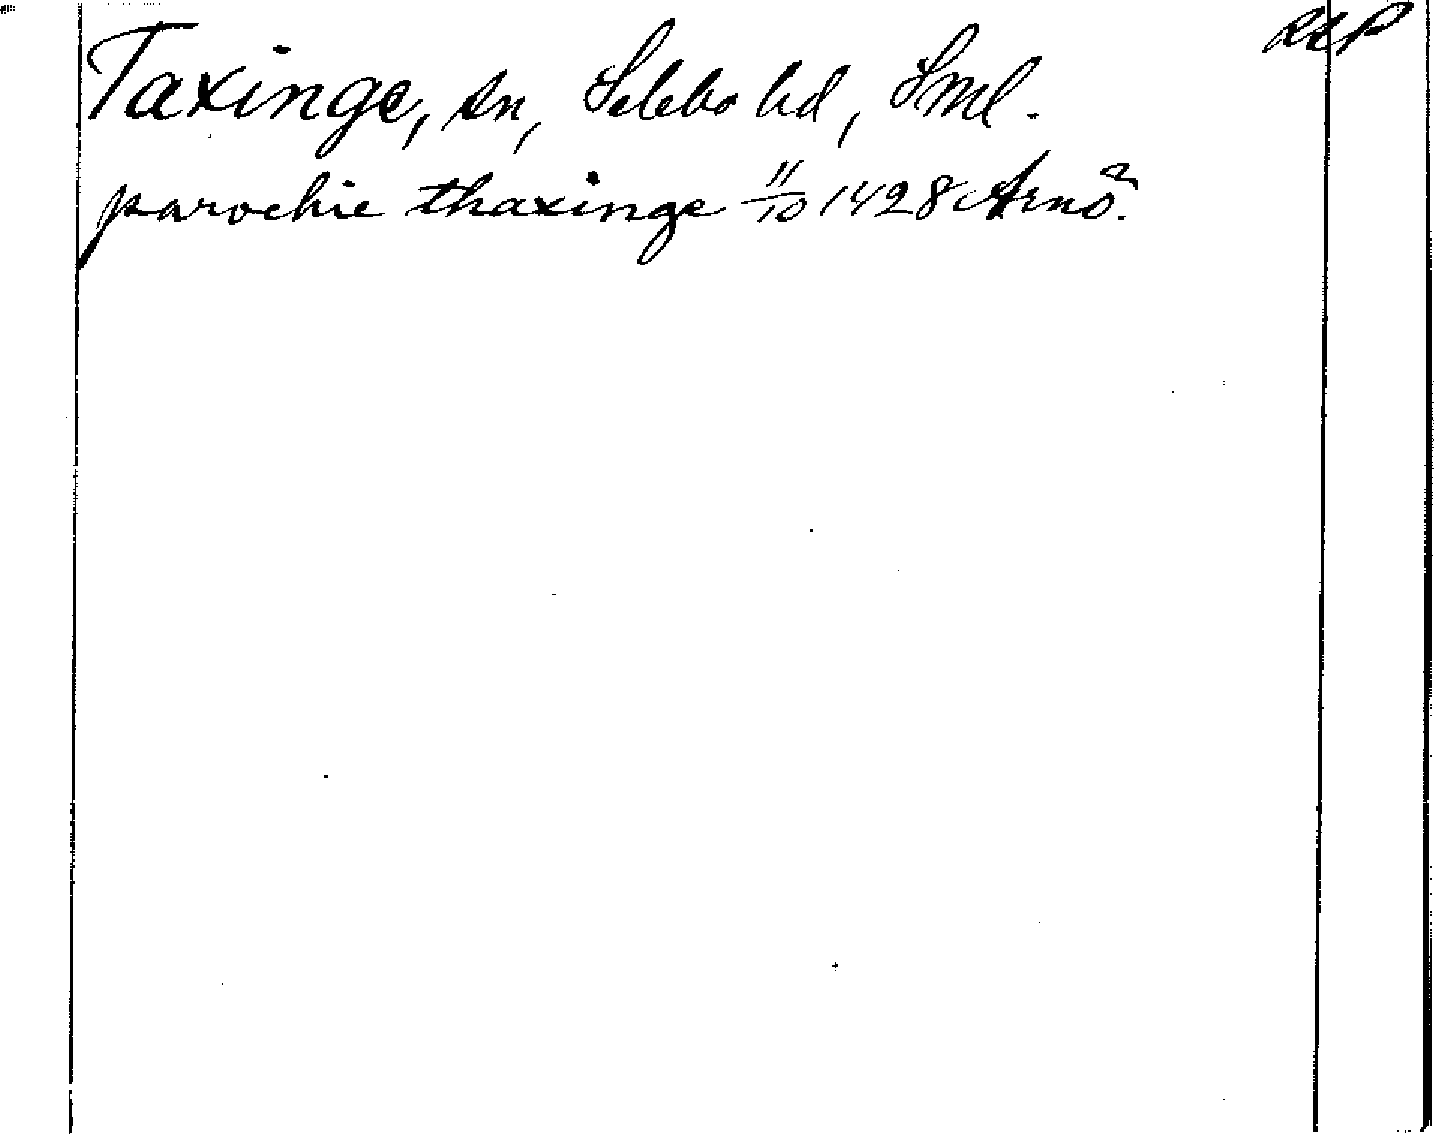 Taxinge, sn, Selebo hd, Sml.
parochie thaxinge 11/10 1428 Arnö.